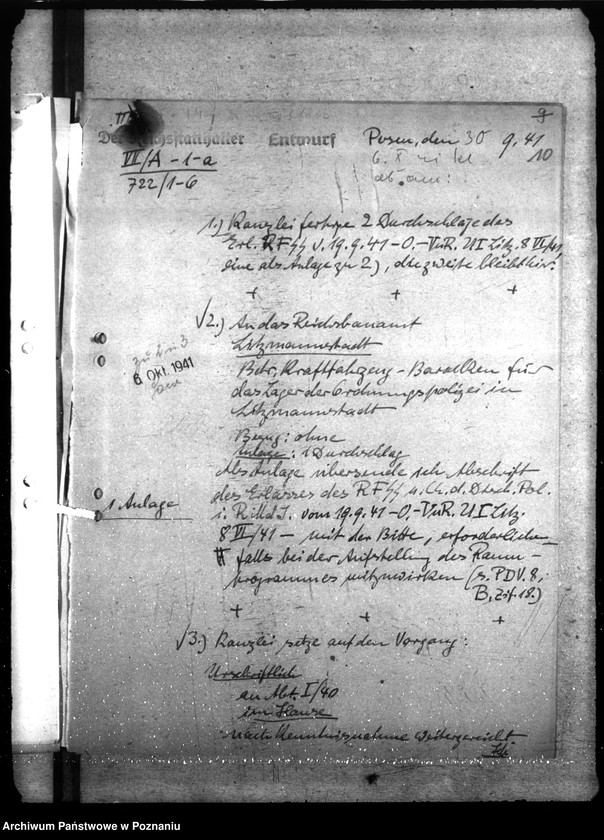 9
Der Reichsstatthalter Entwurf Posen, den 30 9. 41
VI/A - 1 - a 10
722/1-6
ab am:
1.) Kanzlei fertige 2 Durchschläge des
Erl. RFSS v. 19.9.41 - O.-VuR. U I Litz. 8 VI/41,
eine als Anlage zu 2), die zweite bleibt hier.
+ + +
√2.) An das Reichsbauamt
Litzmannstadt
zu 2 u 3
6. Okt. 1941
Betr. Kraftfahrzeug-Baracken für
das Lager der Ordnungspolizei in
Litzmannstadt
Bezug: ohne
Anlage: 1 Durchschlag
Als Anlage übersende ich Abschrift
des Erlasses des RFSS u. Ch. d. Dtsch. Pol.
1 Anlage
i. R.M.d.I. vom 19.9.41 - O - VuR. U I Litz.
8 VI/41 - mit der Bitte, erforderlichen-
falls bei der Aufstellung des Raum-
programmes mitzuwirken (s. PDV. 8,
B, Zif. 18.)
+ + +
√3.) Kanzlei setze auf den Vorgang:
Urschriftlich
an Abt. I/40
im Hause
nach Kenntnisnahme weitergereicht
Archiwum Państwowe w Poznaniu